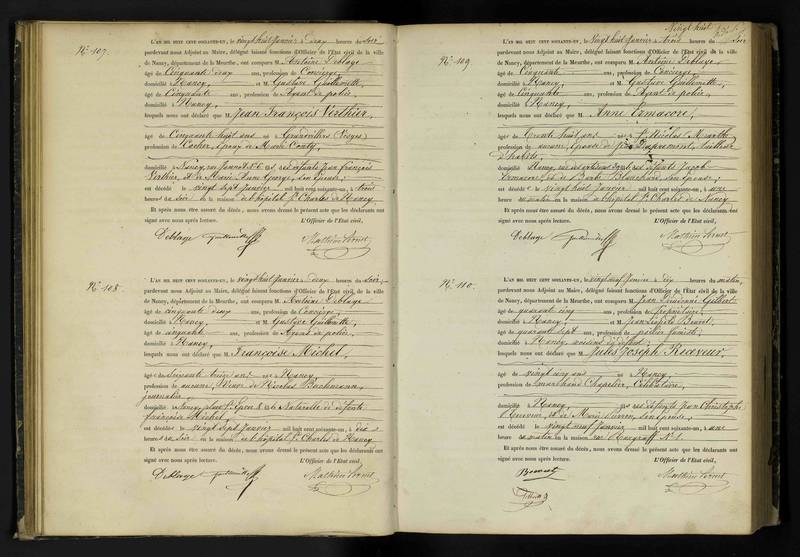 No. 107.
L'AN MIL HUIT CENT SOIXANTE-UN, le vingt huit Janvier à deux heures du Soir
pardevant nous Adjoint au Maire, délégué faisant fonctions d'Officier de l'Etat civil de la ville
de Nancy, département de la Meurthe, ont comparu M. Antoine Deblaye
âgé de Cinquante deux ans, profession de Concierge,
domicilié à Nancy, et M. Gustave Guillemette,
âgé de Cinquante ans, profession de Agent de police,
domicilié à Nancy,
lesquels nous ont déclaré que M. Jean François Verthier,
âgé de Cinquante huit ans né à Grandvillers Vosges
profession de Rocher, époux de Marie Conty,
domicilié à Nancy, fils de défunts Jean François
Verthier, et de Marie Anne George, son épouse;
est décédé le vingt sept Janvier mil huit cent soixante-un, à trois
heures du soir en la maison de l'hôpital St. Charles de Nancy
Et après nous être assuré du décès, nous avons dressé le présent acte que les déclarants ont
signé avec nous après lecture. L'Officier de l'Etat civil,
Deblaye
No. 108.
L'AN MIL HUIT CENT SOIXANTE-UN, le vingt huit Janvier à deux heures du Soir,
pardevant nous Adjoint au Maire, délégué faisant fonctions d'Officier de l'Etat civil de la ville
de Nancy, département de la Meurthe, ont comparu M. Antoine Deblaye
âgé de cinquante deux ans, profession de Concierge,
domicilié à Nancy, et M. Gustave Guillemette,
âgé de cinquante ans, profession de Agent de police,
domicilié à Nancy,
lesquels nous ont déclaré que M. Françoise Michel,
âgée de soixante treize ans née à Nancy,
profession de aucune, Veuve de Nicolas Bachmann,
journalier
domicilié à Nancy, fille Naturelle de défunte
Françoise Michel
est décédée le vingt sept Janvier mil huit cent soixante-un, à dix
heures du soir en la maison de l'hôpital St. Charles de Nancy
Et après nous être assuré du décès, nous avons dressé le présent acte que les déclarants ont
signé avec nous après lecture. L'Officier de l'Etat civil,
Deblaye
Vingt huit
No. 109
L'AN MIL HUIT CENT SOIXANTE-UN, le Vingt huit Janvier à trois heures du Soir
pardevant nous Adjoint au Maire, délégué faisant fonctions d'Officier de l'Etat civil de la ville
de Nancy, département de la Meurthe, ont comparu M. Antoine Deblaye
âgé de Cinquante ans, profession de Concierge,
domicilié à Nancy, et M. Gustave Guillemette,
âgé de Cinquante ans, profession de Agent de police,
domicilié à Nancy,
lesquels nous ont déclaré que M. Anne Ermacore,
âgée de trente huit ans née à St. Nicolas Meurthe
profession de aucune, épouse de tailleur
d'habits,
domicilié à Nancy, fille de défunts Jacob
Ermacore, et de Barbe Blanchard, son épouse;
est décédée le vingt huit Janvier mil huit cent soixante-un, à une
heure du matin en la maison de l'hôpital St. Charles de Nancy.
Et après nous être assuré du décès, nous avons dressé le présent acte que les déclarants ont
signé avec nous après lecture. L'Officier de l'Etat civil,
Deblaye
No. 110.
L'AN MIL HUIT CENT SOIXANTE-UN, le vingt neuf Janvier à dix heures du matin,
pardevant nous Adjoint au Maire, délégué faisant fonctions d'Officier de l'Etat civil de la ville
de Nancy, département de la Meurthe, ont comparu M. Jean Dieudonné Gilbert
âgé de quarante cinq ans, profession de propriétaire,
domicilié à Nancy, et M. Jean Baptiste
âgé de quarante sept ans, profession de
domicilié à Nancy, voisins du défunt;
lesquels nous ont déclaré que M. Jules Joseph Receveur,
âgé de vingt cinq ans né à Nancy,
profession de marchand Chapelier, Célibataire,
domicilié à Nancy, fils de défunt Jean Christophe
Receveur, et de Marie son épouse;
est décédé le vingt neuf Janvier mil huit cent soixante-un, à une
heure du matin en la maison rue No. 1.
Et après nous être assuré du décès, nous avons dressé le présent acte que les déclarants ont
signé avec nous après lecture. L'Officier de l'Etat civil,